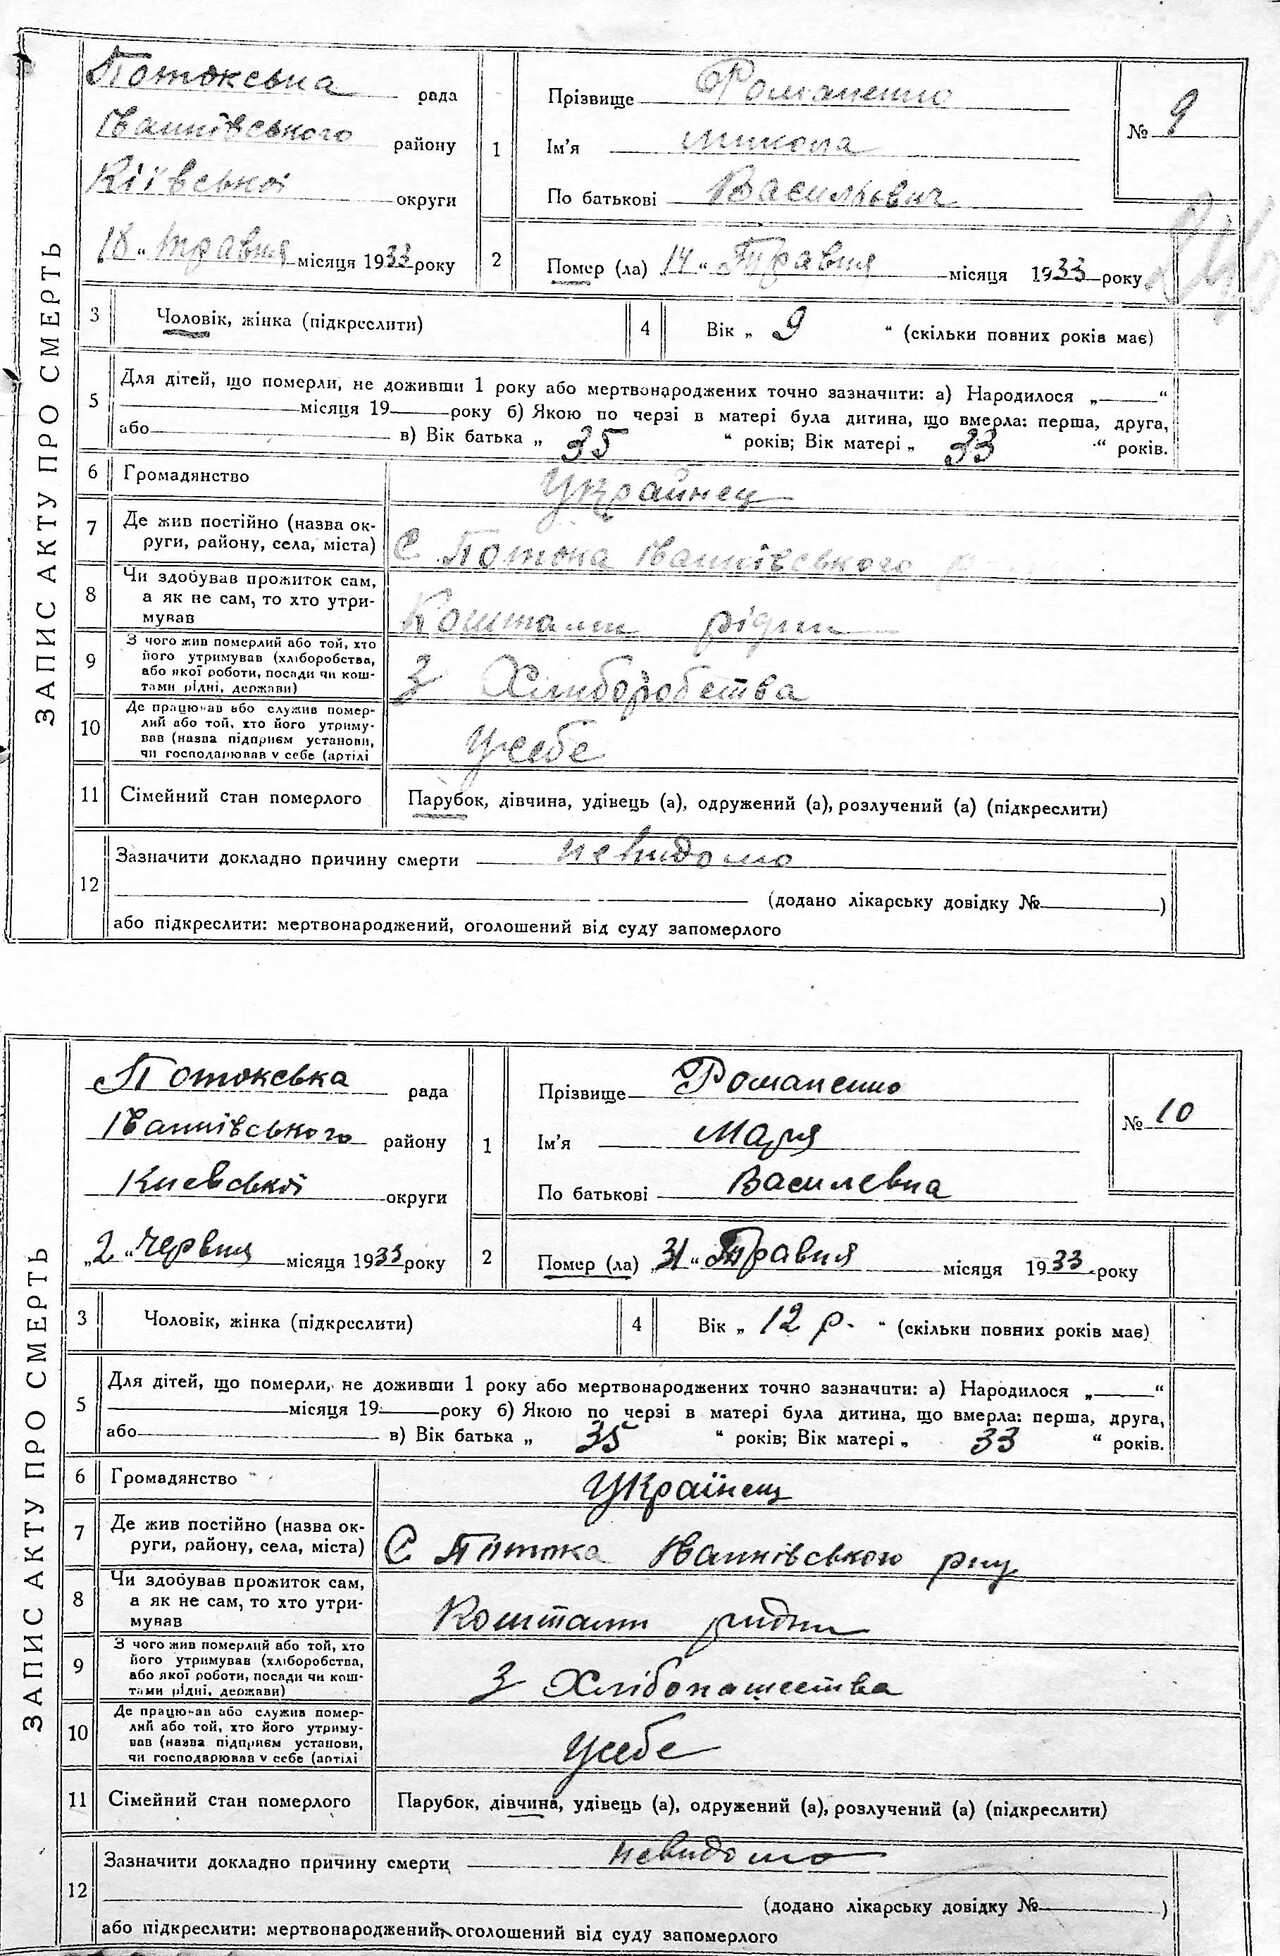 ЗАПИС АКТУ ПРО СМЕРТЬ
Потокська рада
Іванківського району
Кіївської округи
18 „ травня місяця 1933 року
1
Прізвище Романенко
Ім'я Микола
По батькові Васильович
№ 9
2
Помер (ла) 14 „ Травня місяця 1933 року
3 Чоловік, жінка (підкреслити)
4 Вік „ 9 “ (скільки повних років має)
5 Для дітей, що померли, не доживши 1 року або мертвонароджених точно зазначити: а) Народилося „ “
місяця 19 року б) Якою по черзі в матері була дитина, що вмерла: перша, друга,
або в) Вік батька „ 35 “ років; Вік матері „ 33 “ років.
6 Громадянство Украйнец
7 Де жив постійно (назва ок-
руги, району, села, міста) С Потока Іванківського
8 Чи здобував прожиток сам,
а як не сам, то хто утри-
мував Коштами рідни
9 З чого жив померлий або той, хто
його утримував (хліборобства,
або якої роботи, посади чи кош-
тами рідні, держави) З Хлиборобства
10 Де працював або служив помер-
лий або той, хто його утриму-
вав (назва підприєм установи,
чи господарював у себе (артілі Усебе
11 Сімейний стан померлого Парубок, дівчина, удівець (а), одружений (а), розлучений (а) (підкреслити)
12 Зазначити докладно причину смерти невидомо
(додано лікарську довідку № )
або підкреслити: мертвонароджений, оголошений від суду запомерлого
ЗАПИС АКТУ ПРО СМЕРТЬ
Потокська рада
Іванківського району
Киевської округи
„2 “ Червня місяця 1933 року
1
Прізвище Романенко
Ім'я Марія
По батькові Василевна
№ 10
2
Помер (ла) 31 “ Травня місяця 1933 року
3 Чоловік, жінка (підкреслити)
4 Вік „ 12 р. “ (скільки повних років має)
5 Для дітей, що померли, не доживши 1 року або мертвонароджених точно зазначити: а) Народилося „ “
місяця 19 року б) Якою по черзі в матері була дитина, що вмерла: перша, друга,
або в) Вік батька „ 35 “ років; Вік матері „ 33 “ років.
6 Громадянство Українец
7 Де жив постійно (назва ок-
руги, району, села, міста) С Потока Іванківського рну
8 Чи здобував прожиток сам,
а як не сам, то хто утри-
мував Коштами ридни
9 З чого жив померлий або той, хто
його утримував (хліборобства,
або якої роботи, посади чи кош-
тами рідні, держави) З Хлібопашества
10 Де працював або служив помер-
лий або той, хто його утриму-
вав (назва підприєм установи,
чи господарював у себе (артілі Усебе
11 Сімейний стан померлого Парубок, дівчина, удівець (а), одружений (а), розлучений (а) (підкреслити)
12 Зазначити докладно причину смерти невидомо
(додано лікарську довідку № )
або підкреслити: мертвонароджений, оголошений від суду запомерлого